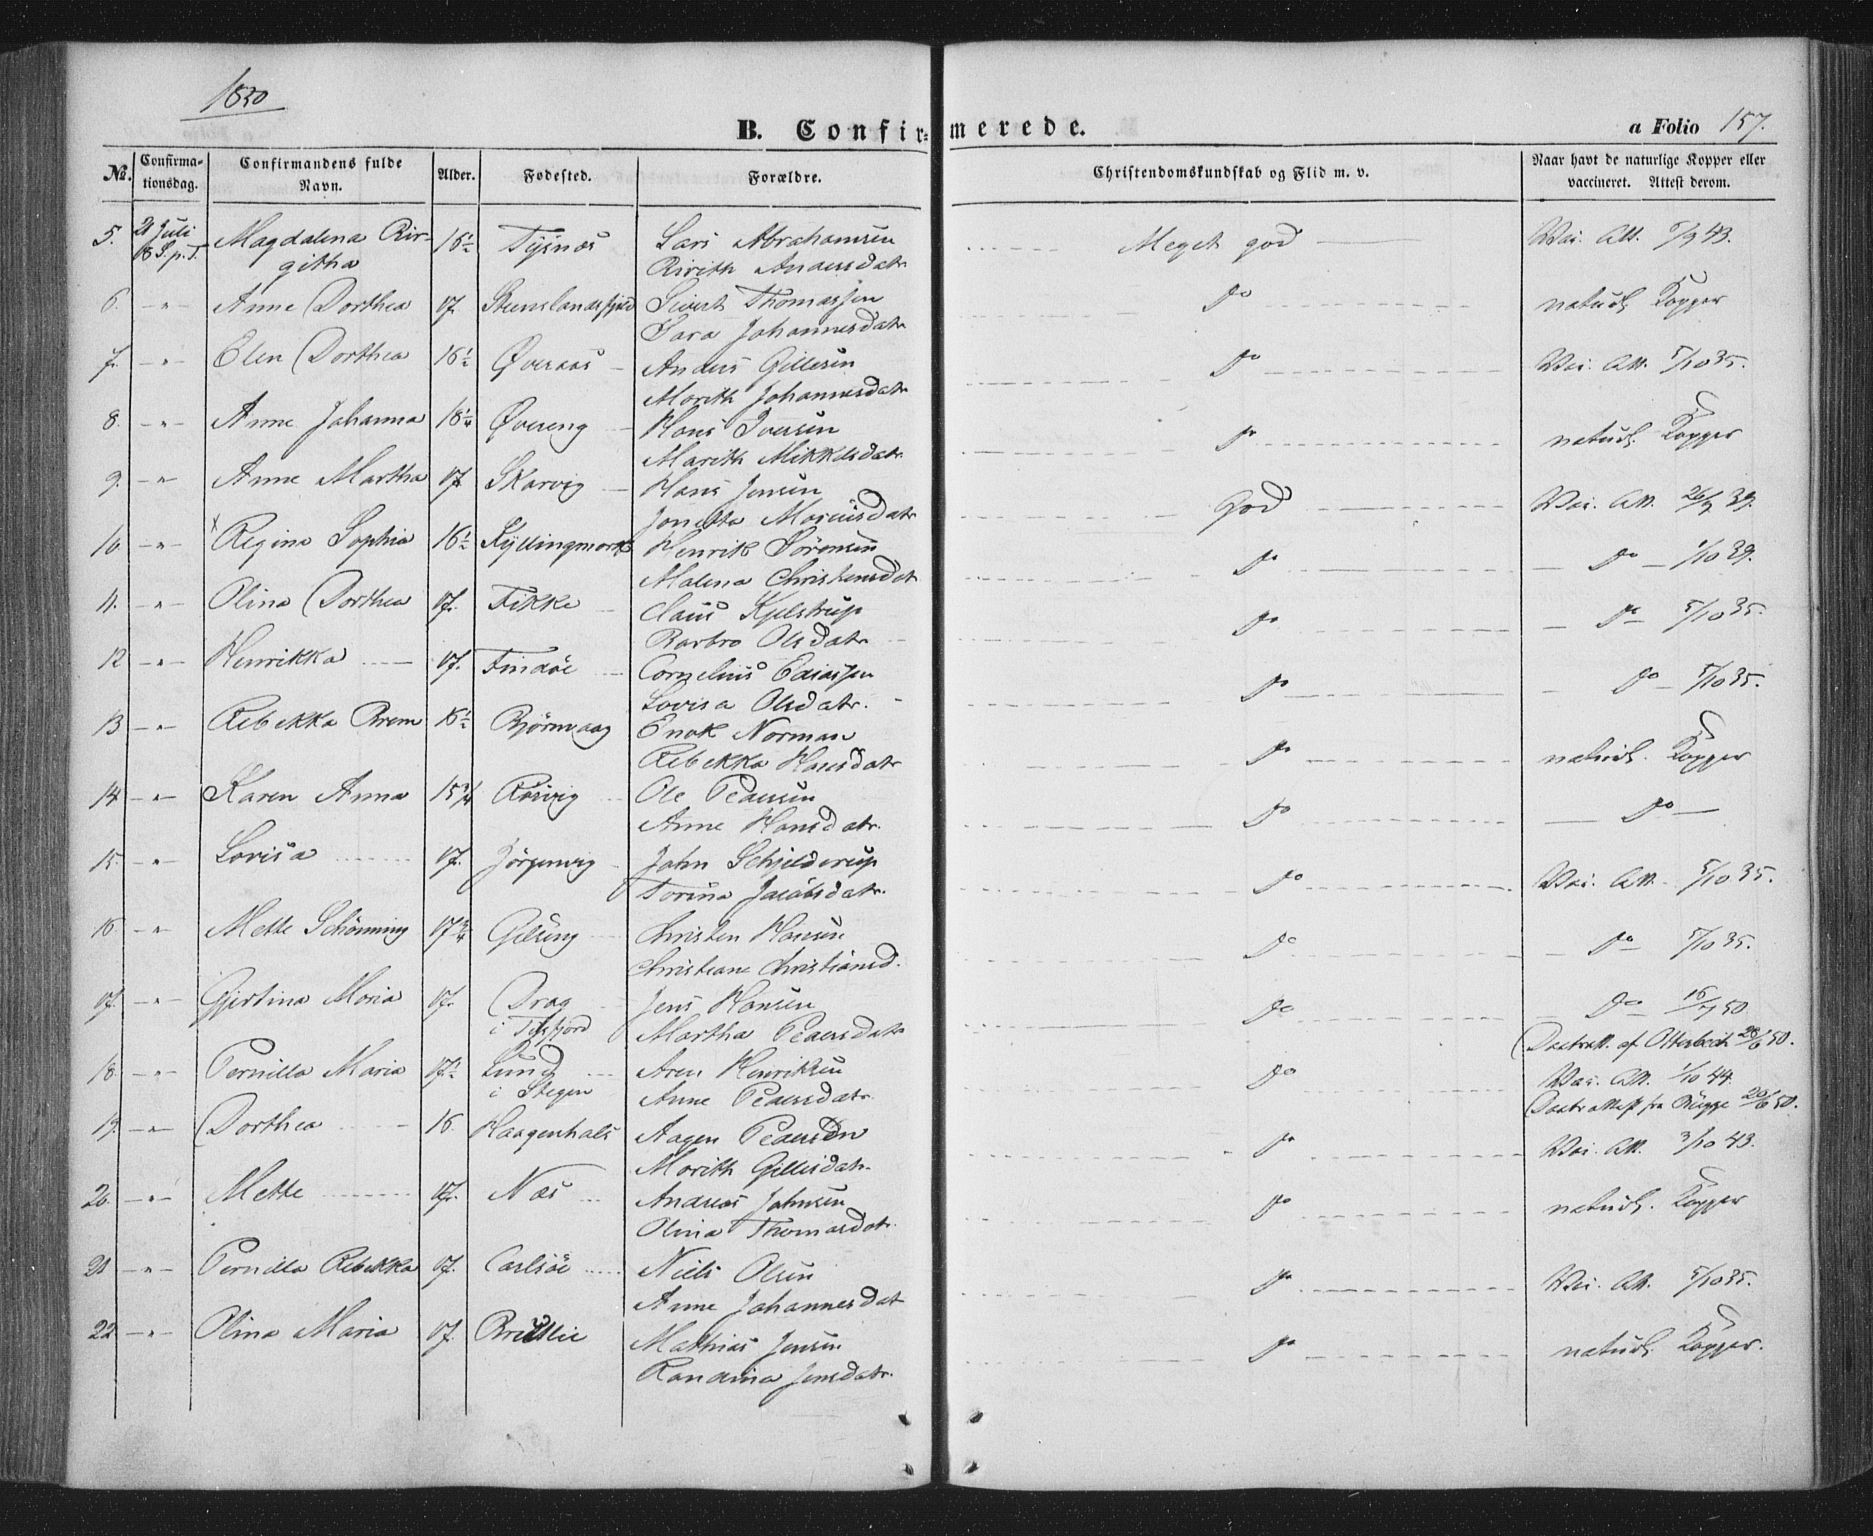 1850
B. Confirmerede.
a Folio 157.
No. Confirmationsdag. Confirmandens fulde Navn. Alder. Fødested. Forældre. Christendomskundskab og Flid m. v. Naar havt de naturlige Kopper eller vaccineret. Attest derom.
5. 21 Juli Magdalena Bir- 16½ Tysnæs Lars Abrahamsen Meget god Vac. Att. 43.
8 S. p. T. githa Birith Andersdatr
6. -"- Anne Dorthea 17. Steenslandsfjord Sivert Thomassen do naturl. Kopper
Sara Johannesdatr
7. -"- Elen Dorthea 16½ Øveraas Anders Gillesen do Vac. Att. 5/10 35.
Marith Johannesdatr
8. -"- Anne Johanna 18¼ Øvereng Hans Iversen do naturl. Kopper
Marith Mikkelsdatr
9. -"- Anne Martha 17 Skarvig Hans Jensen God Vac. Att. 26/9 39.
Jonetta Mariusdatr
10 -"- Regine Sophia 16½ Kyllingmark Henrik Sørensen do do 1/10 39.
Malena Christensdat
11. -"- Olina Dorthea 17. Fikke Claus Kjelstrup do do 5/10 35.
Barbro Olsdatr
12 -"- Henrikka 17. Findøe Cornelius Edisassen do do 5/10 35.
Lovisa Olsdatr.
13 -"- Rebekka Brem 16½ Bjørnvaag Enok Norman do naturl. Kopper
Rebekka Hansdatr
14 -"- Karen Anna 15¾ Røsvig Ole Pedersen do do
Anne Hansdatr.
15. -"- Lovisa 17. Jørgenvig John Schjelderup do Vac. Att. 5/10 35.
Torina Jacobsdatr.
16 -"- Mette Schønning 17¾ Christen Hansen do do 5/10 35.
Christiane Christiansd.
17. -"- Gjertina Maria 17. Drag Jens Hansen do do 16/7 50
i Tysfjord Martha Pedersdatr (Daabsatt. af Otterbech 28/6 50.
18 -"- Pernilla Maria 17½ Lund Aren Henriksen do Vac. Att. 1/10 44.
i Stegen Anne Pedersdatr. (Daabsattest fra 20/6 50.
19. -"- Dorthea 16. Haagenhals Aagen Pedersen do Vac. Att. 3/10 43.
Marith Gillisdatr.
20. -"- Mette 17. Næs Andreas Johnsen do naturl. Kopper
Olina Thomasdatr.
21 -"- Pernilla Rebekka 17. Carlsøe Niels Olsen do Vac. Att. 5/10 35.
Anne Johannesdat
22 -"- Olina Maria 17. Bredlie Mathias Jensen do naturl. Kopper.
Randina Jensdatr.